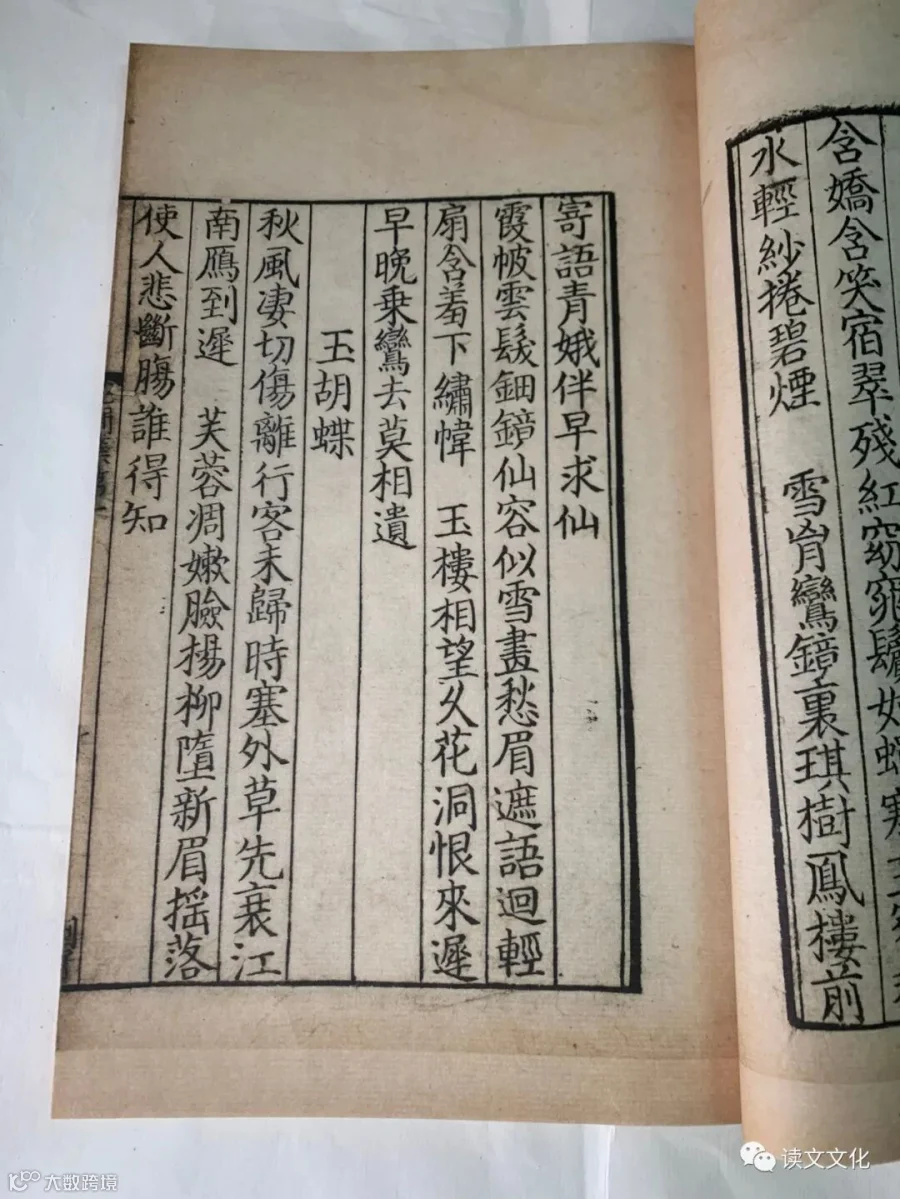 含嬌含笑宿翠殘紅窈窕鬢如蟬寒
水輕紗捲碧煙　雪胷鸞鏡裏琪樹鳳樓前
寄語青娥伴早求仙
霞帔雲髮鈿鏡仙容似雪畫愁眉遮語迴輕
扇含羞下繡幃　玉樓相望久花洞恨來遲
早晚乘鸞去莫相遺
玉胡蝶
秋風凄切傷離行客未歸時塞外草先衰江
南鴈到遲　芙蓉凋嫩臉楊柳墮新眉揺落
使人悲斷膓誰得知
读文文化
大数跨境